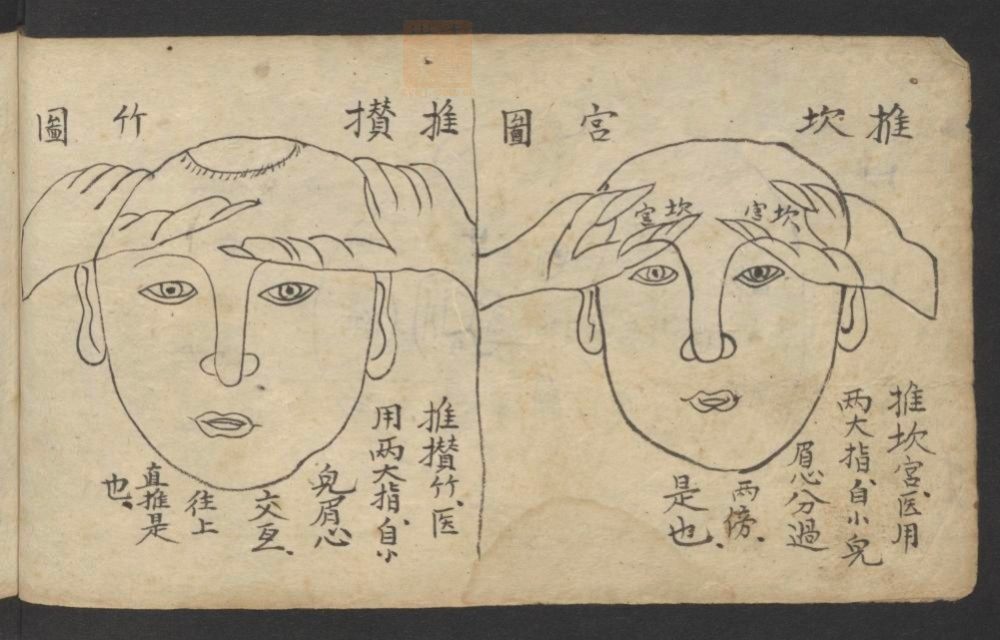 推坎宮圖
坎宮
坎宮
推坎宮、医用
两大指、自小兒
眉心分過
两傍、
是也、
推攅竹圖
推攅竹、医
用两大指、自小
兒眉心
交互、
往上
直推是
也、